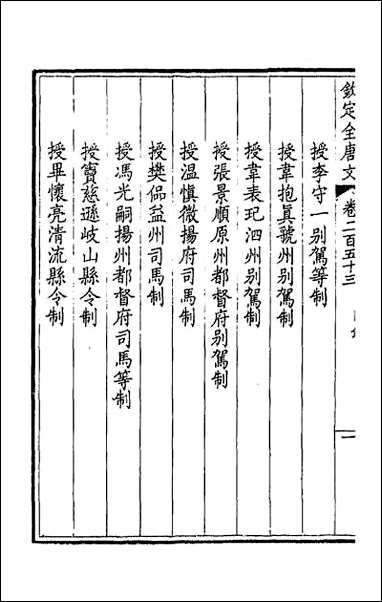 欽定全唐文 卷二百五十三 目錄 一
授李守一别駕等制
授韋抱眞虢州别駕制
授韋表玘泗州别駕制
授張景順原州都督府别駕制
授温愼微揚府司馬制
授樊偘益州司馬制
授馮光嗣揚州都督府司馬等制
授竇慈遜岐山縣令制
授畢懷亮清流縣令制